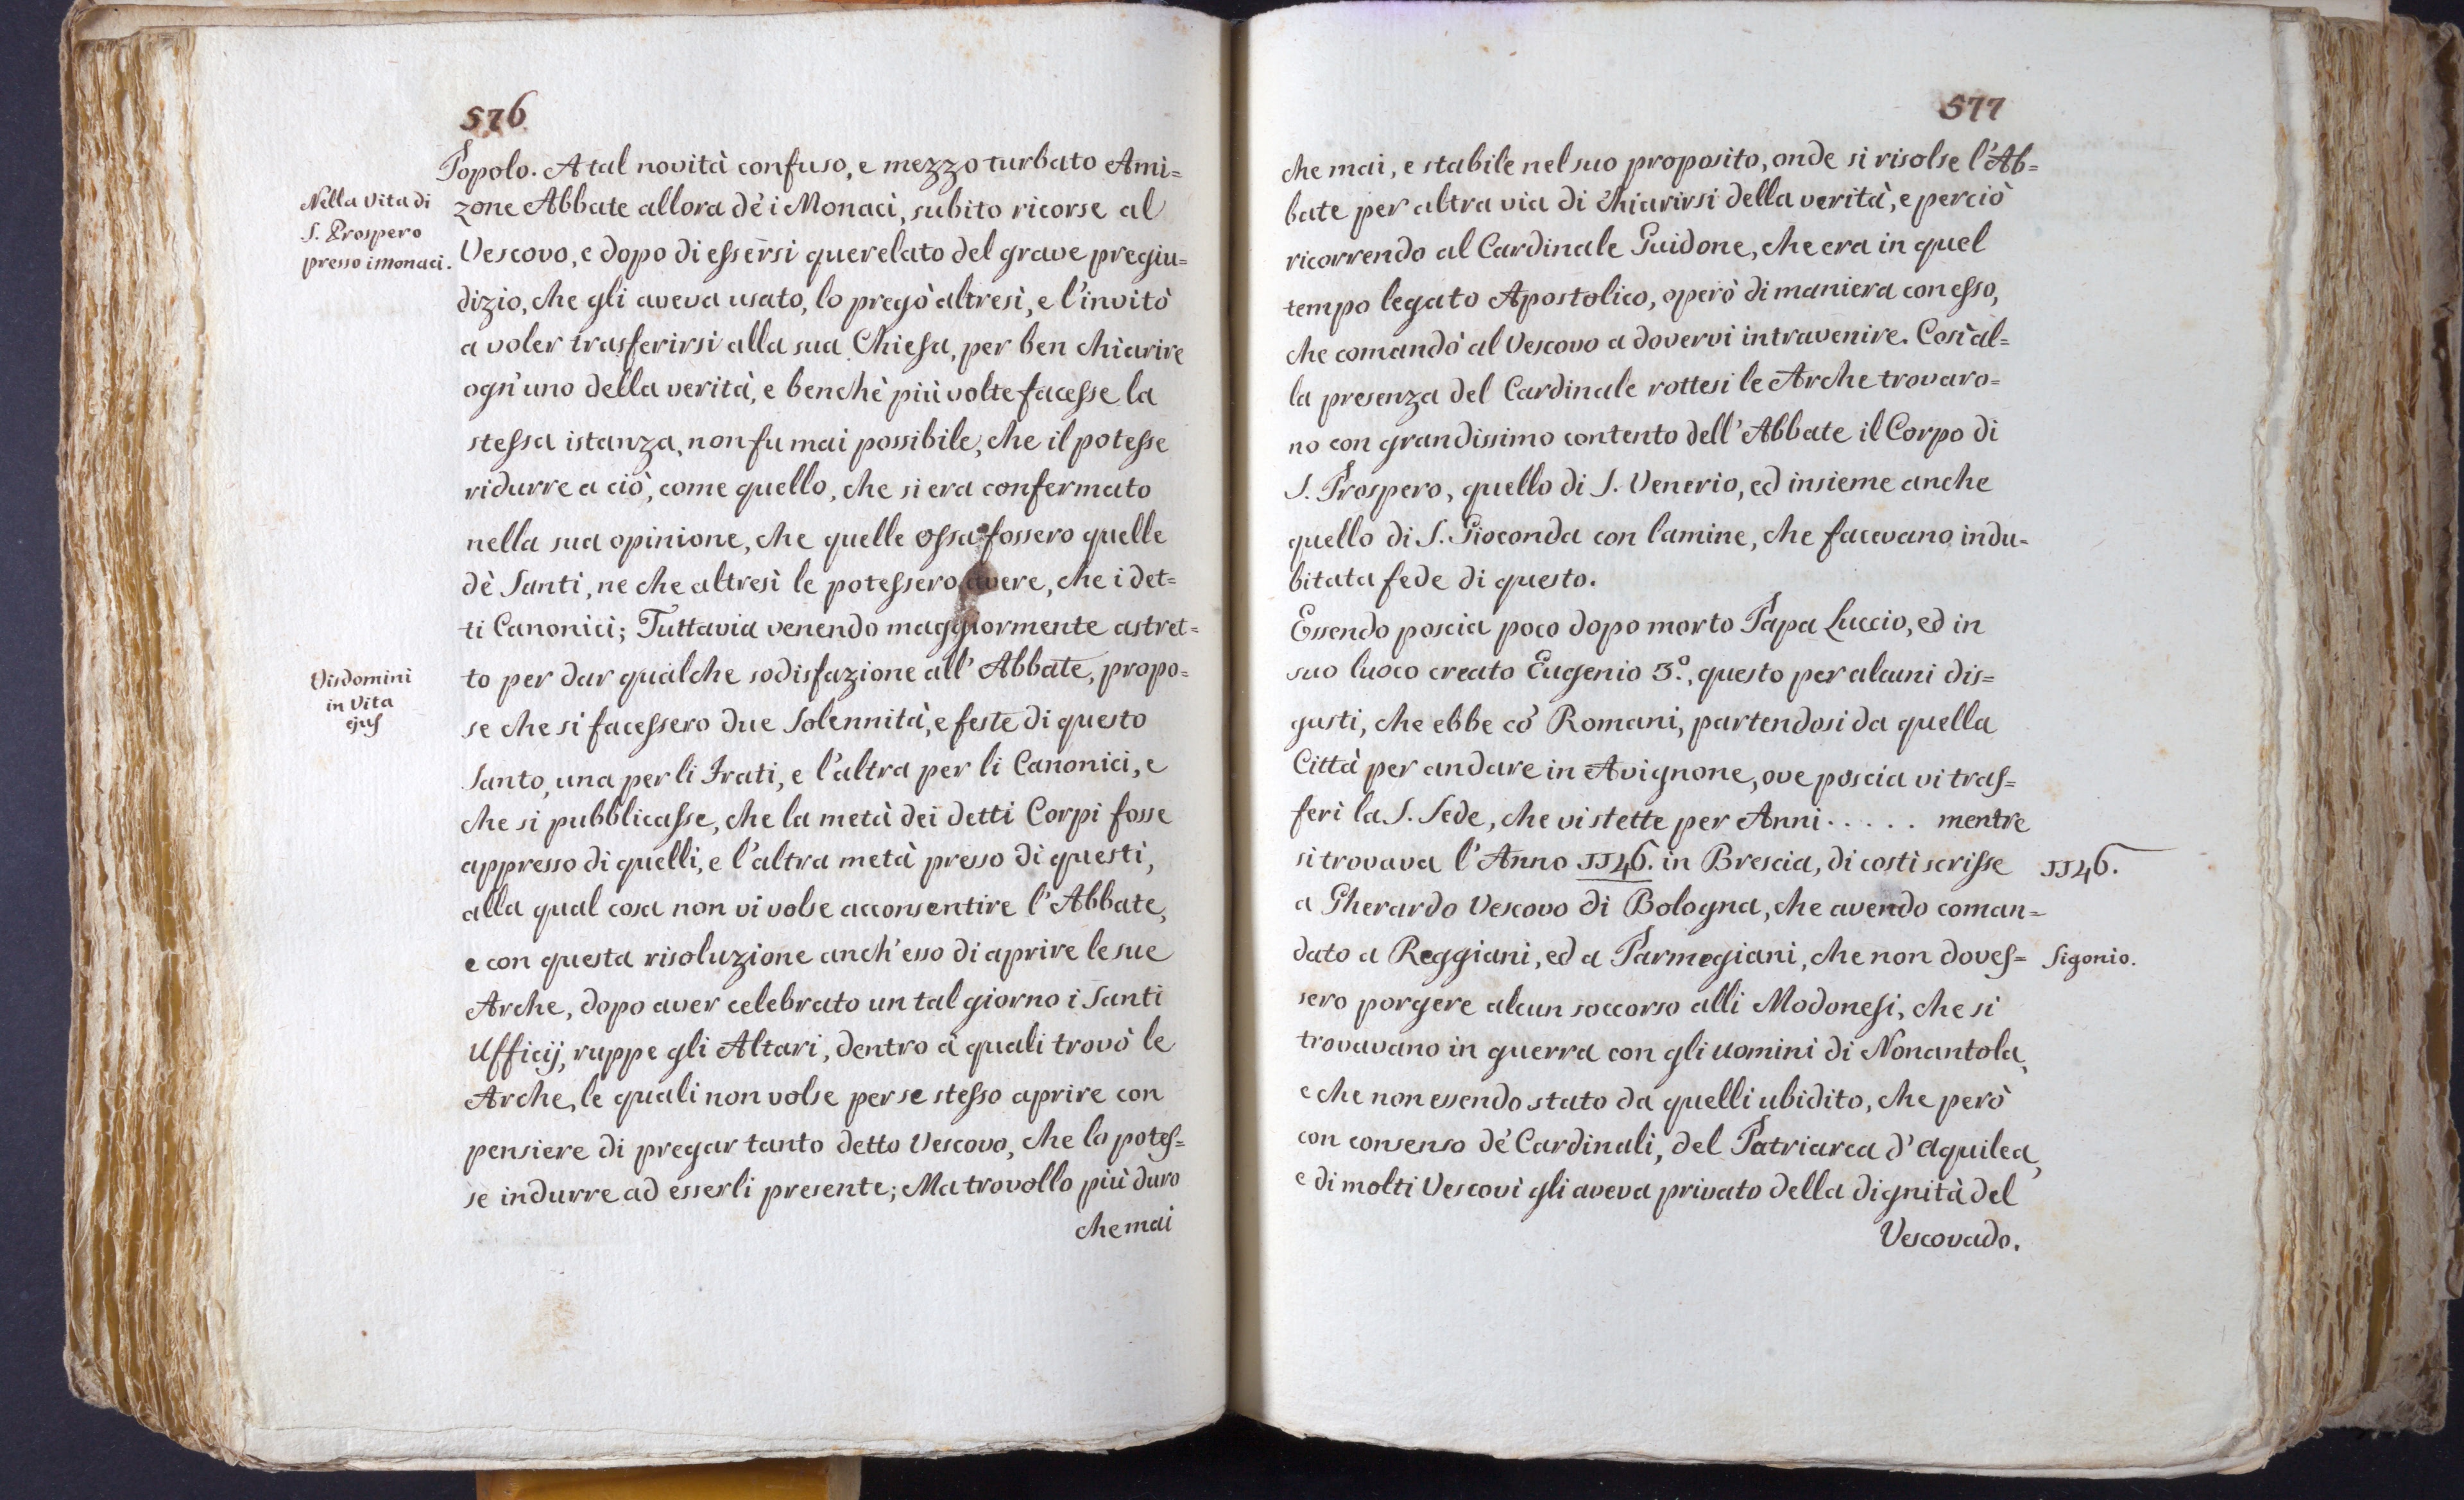 576
Popolo. A tal novità confuso, e mezzo turbato Ami=
zone Abbate allora dè i Monaci, subito ricorse al
Vescovo, e dopo di essersi querelato del grave pregiu=
dizio, che gli aveva usato, lo pregò altresì, e l'invitò
a voler trasferirsi alla sua Chiesa, per ben chiarire
ogn'uno della verità, e benchè più volte facesse la
stessa istanza, non fu mai possibile, che il potesse
ridurre a ciò, come quello, che si era confermato
nella sua opinione, che quelle ossa fossero quelle
dè Santi, ne che altresì le potessero avere, che i det=
ti Canonici; Tuttavia venendo maggiormente astret=
to per dar qualche sodisfazione all'Abbate, propo=
se che si facessero due Solennità, e feste di questo
Santo, una per li Frati, e l'altra per li Canonici, e
che si pubblicasse, che la metà dei detti Corpi fosse
appresso di quelli, e l'altra metà presso di questi,
alla qual cosa non vi volse acconsentire l'Abbate,
e con questa risoluzione anch'esso di aprire le sue
Arche, dopo aver celebrato un tal giorno i Santi
Ufficij, ruppe gli Altari, dentro à quali trovò le
Arche, le quali non volse per se stesso aprire con
pensiere di pregar tanto detto Vescovo, che lo potes=
se indurre ad esserli presente; Ma trovollo più duro
che mai
Nella Vita di
S. Prospero
presso i monaci.
Visdomini
in Vita
ejus
577
che mai, e stabile nel suo proposito, onde si risolse l'Ab=
bate per altra via di chiarirsi della verità, e perciò
ricorrendo al Cardinale Guidone, che era in quel
tempo legato Apostolico, operò di maniera con esso,
che comandò al Vescovo a dovervi intravenire. Così al=
la presenza del Cardinale rottesi le Arche trovaro=
no con grandissimo contento dell'Abbate il Corpo di
S. Prospero, quello di S. Venerio, ed insieme anche
quello di S. Gioconda con lamine, che facevano indu=
bitata fede di questo.
Essendo poscia poco dopo morto Papa Luccio, ed in
suo luoco creato Eugenio 3.º, questo per alcuni dis=
gusti, che ebbe cò Romani, partendosi da quella
Città per andare in Avignone, ove poscia vi tras=
ferì la S. Sede, che vi stette per Anni . . . . . mentre
si trovava l'Anno 1146. in Brescia, di costi scrisse
a Gherardo Vescovo di Bologna, che avendo coman=
dato a Reggiani, ed a Parmegiani, che non doves=
sero porgere alcun soccorso alli Modonesi, che si
trovavano in guerra con gli uomini di Nonantola,
e che non essendo stato da quelli ubidito, che però
con consenso dè Cardinali, del Patriarca d'Aquilea,
e di molti Vescovi gli aveva privato della dignità del
Vescovado.
1146.
Sigonio.